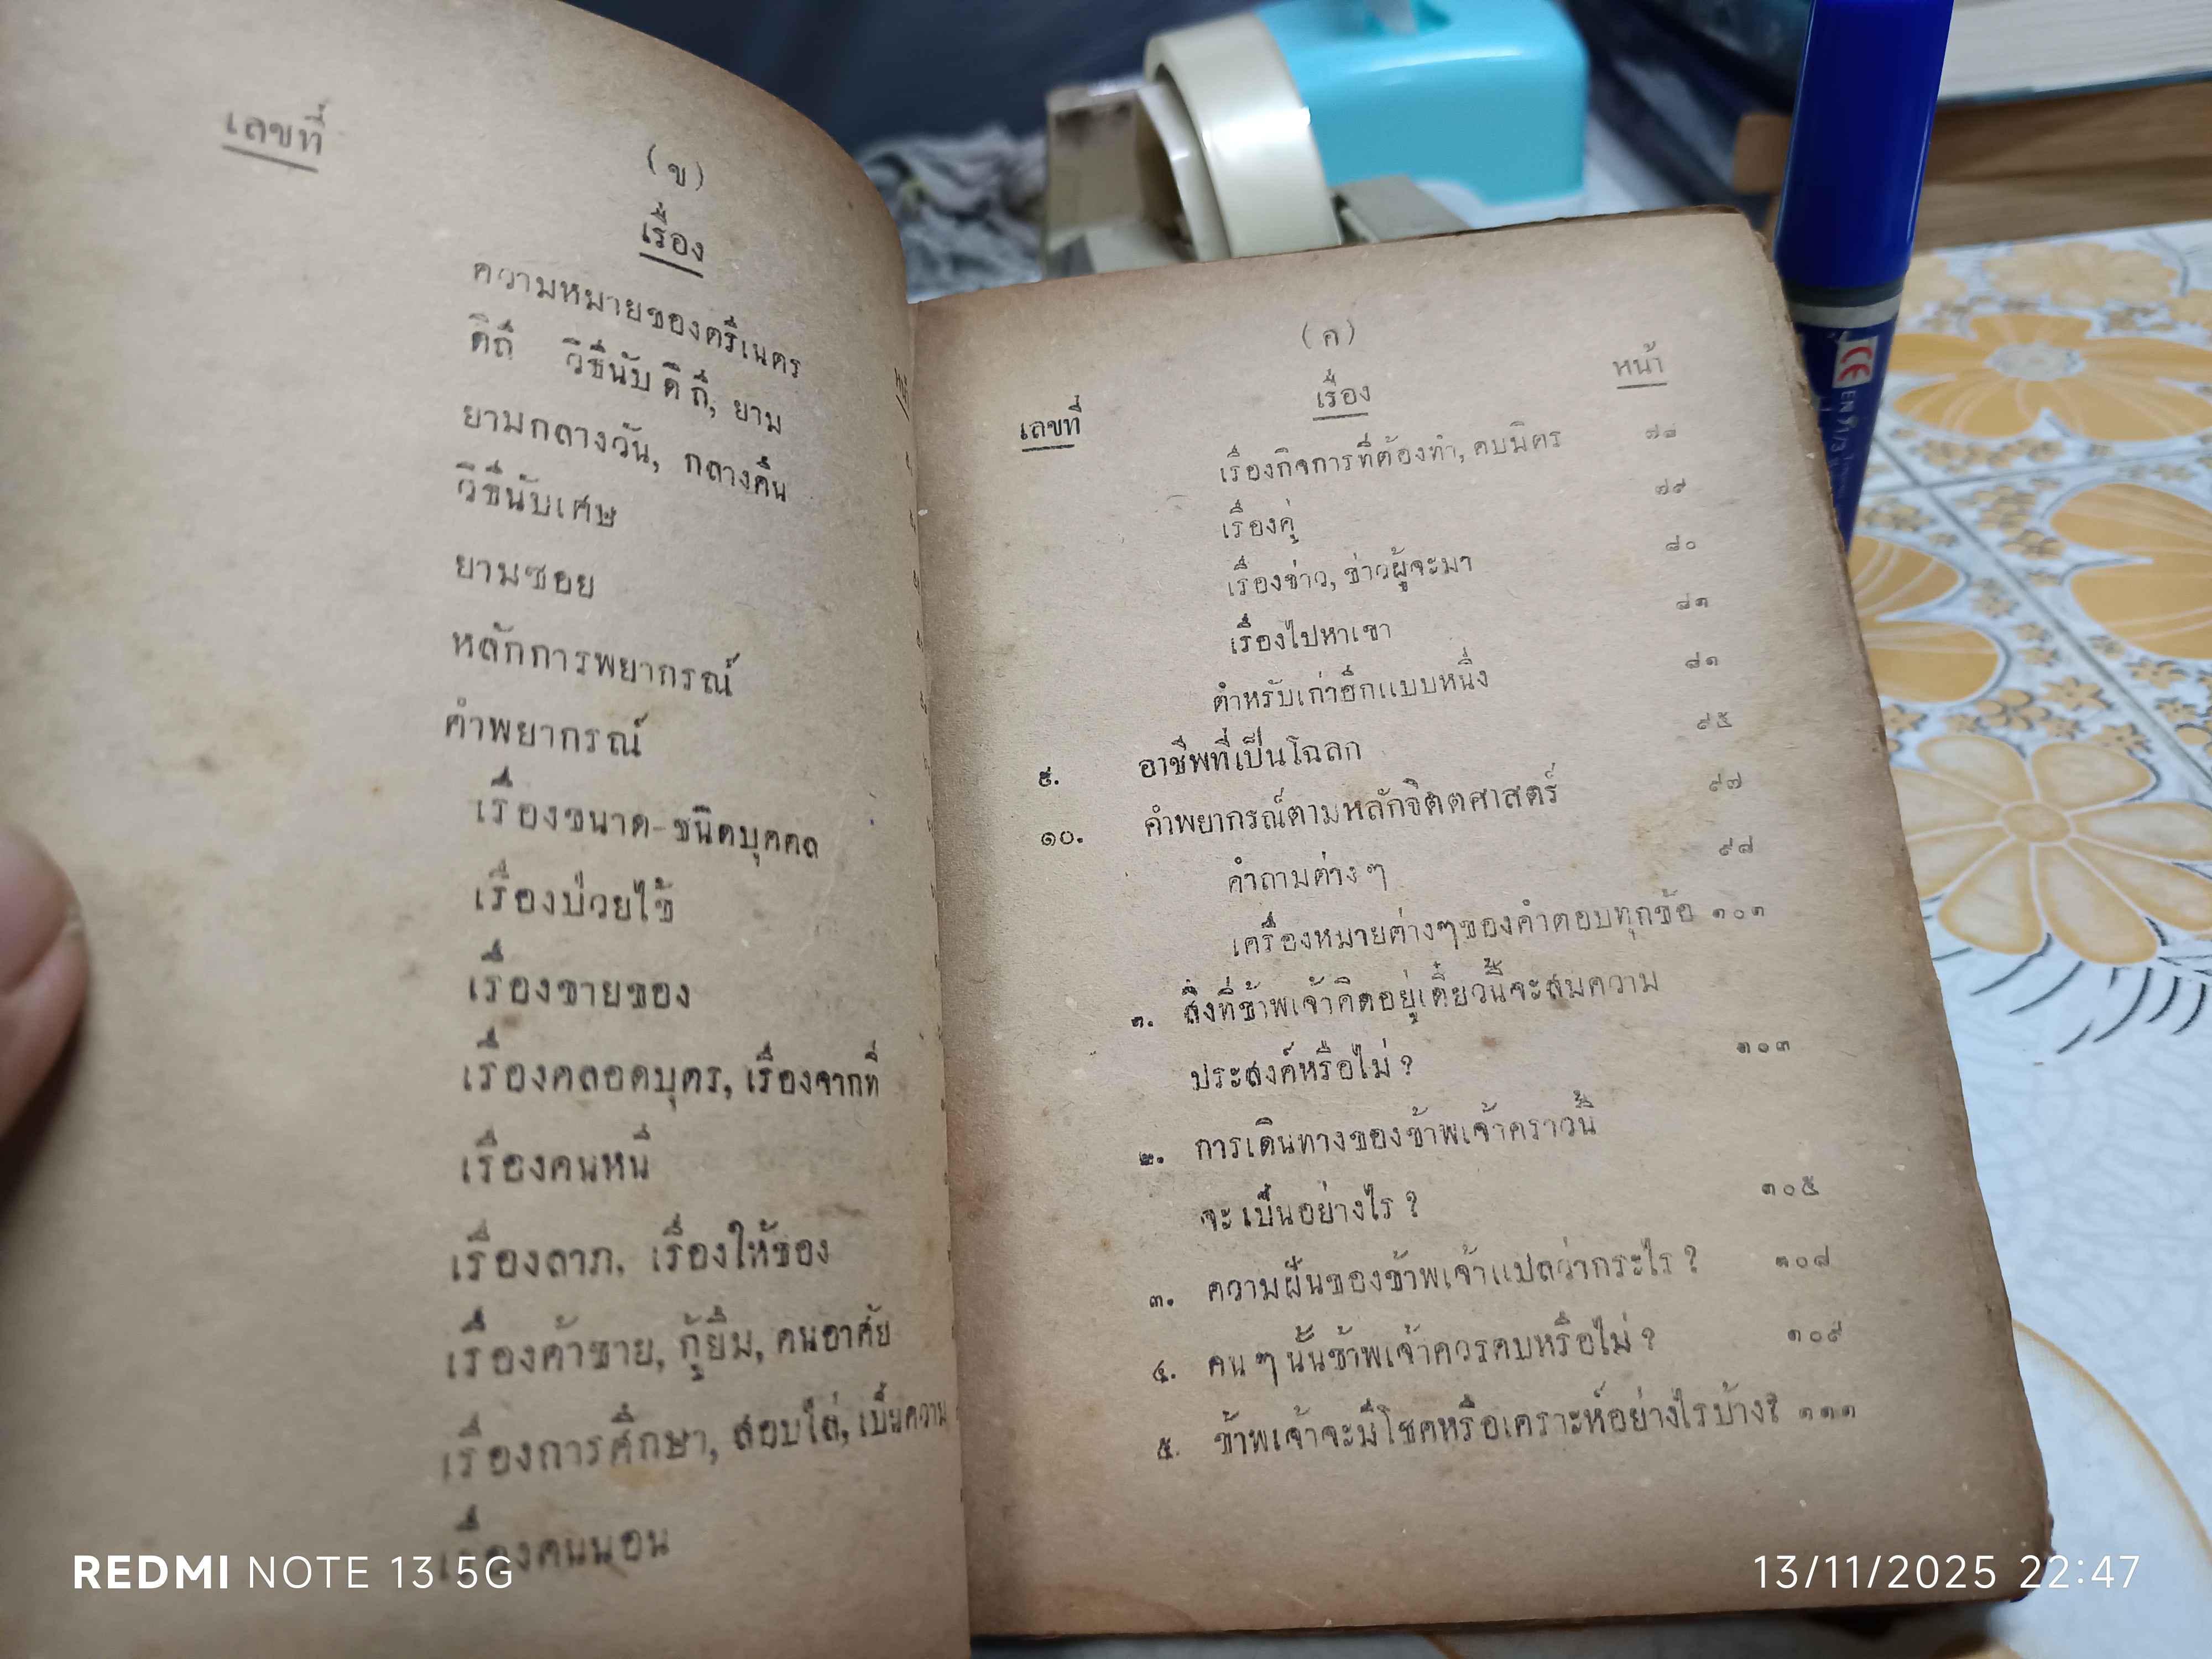 (ข)
เลขที่
เรื่อง
ความหมายของตรีเนตร
ดิถี วิธีนับดิถี, ยาม
ยามกลางวัน, กลางคืน
วิธีนับเศษ
ยามซอย
หลักการพยากรณ์
คำพยากรณ์
เรื่องขนาด-ชนิดบุคคล
เรื่องป่วยไข้
เรื่องขายของ
เรื่องคลอดบุตร, เรื่องจากที่
เรื่องคนหนี
เรื่องลาภ, เรื่องให้ของ
เรื่องค้าขาย, กู้ยืม, คนอาศัย
เรื่องการศึกษา, สอบไล่, เป็นความ
เรื่องคนนอน
(ค)
เลขที่ เรื่อง หน้า
เรื่องกิจการที่ต้องทำ, คบมิตร ๗๘
เรื่องคู่ ๗๙
เรื่องข่าว, ข่าวผู้จะมา ๘๐
เรื่องไปหาเขา ๘๑
ตำหรับเก่าอีกแบบหนึ่ง ๘๑
๙. อาชีพที่เป็นโฉลก ๙๕
๑๐. คำพยากรณ์ตามหลักจิตตศาสตร์ ๙๗
คำถามต่าง ๆ ๙๘
เครื่องหมายต่างๆของคำตอบทุกข้อ ๑๐๑
๑. สิ่งที่ข้าพเจ้าคิดอยู่เดี๋ยวนี้จะสมความ
ประสงค์หรือไม่ ? ๑๐๓
๒. การเดินทางของข้าพเจ้าคราวนี้
จะเป็นอย่างไร ? ๑๐๕
๓. ความฝันของข้าพเจ้าแปลว่ากระไร ? ๑๐๘
๔. คน ๆ นั้นข้าพเจ้าควรคบหรือไม่ ? ๑๐๙
๕. ข้าพเจ้าจะมีโชคหรือเคราะห์อย่างไรบ้าง? ๑๑๑
REDMI NOTE 13 5G
13/11/2025 22:47